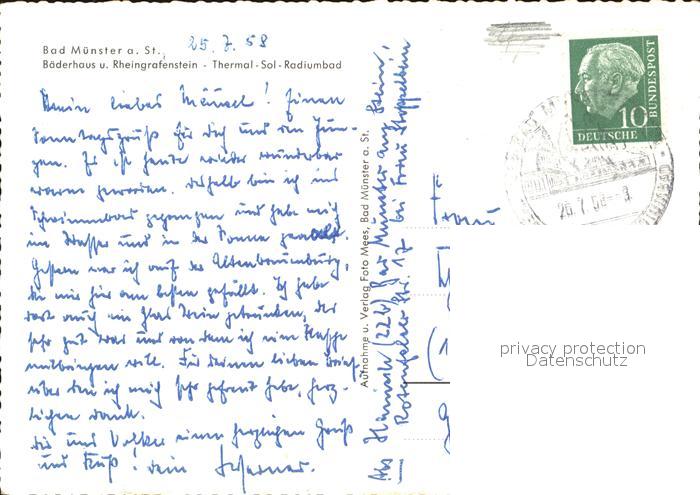 Bad Münster a. St., 25.7.58
Bäderhaus u. Rheingrafenstein - Thermal-Sol-Radiumbad
Mein liebes Mäusel! Einen
Sonntagsgruß für Dich und den Jun-
gen. Es ist heute wieder wunderbar
warm geworden. deshalb bin ich ins
Schwimmbad gegangen und habe mich
im Wasser und in der Sonne
Gestern war ich auf der Altenbaumburg,
die mir hier am besten gefällt. Ich habe
dort auch ein Glas Wein getrunken, der
sehr gut war und von dem ich eine Flasche
mitbringen will. Für Deinen lieben Brief
über den ich mich sehr gefreut habe, herz-
lichen Dank.
Dir und Volker einen herzigen Gruß
und Kuß! Dein Werner.
Aufnahme u. Verlag Foto Mees, Bad Münster a. St.
Abs (22b) Bad Münster am Stein,
Rotenfelser Str. 17 bei Frau Stoppelbein
Frau
10
DEUTSCHE
BUNDESPOST
26.7.58
privacy protection
Datenschutz